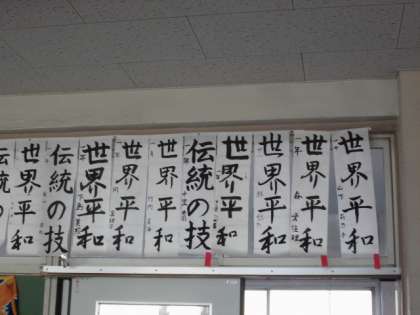 世界平和
世界平和
世界平和
世界平和
伝統の技
世界平和
世界平和
世界平和
伝統の技
世界平和